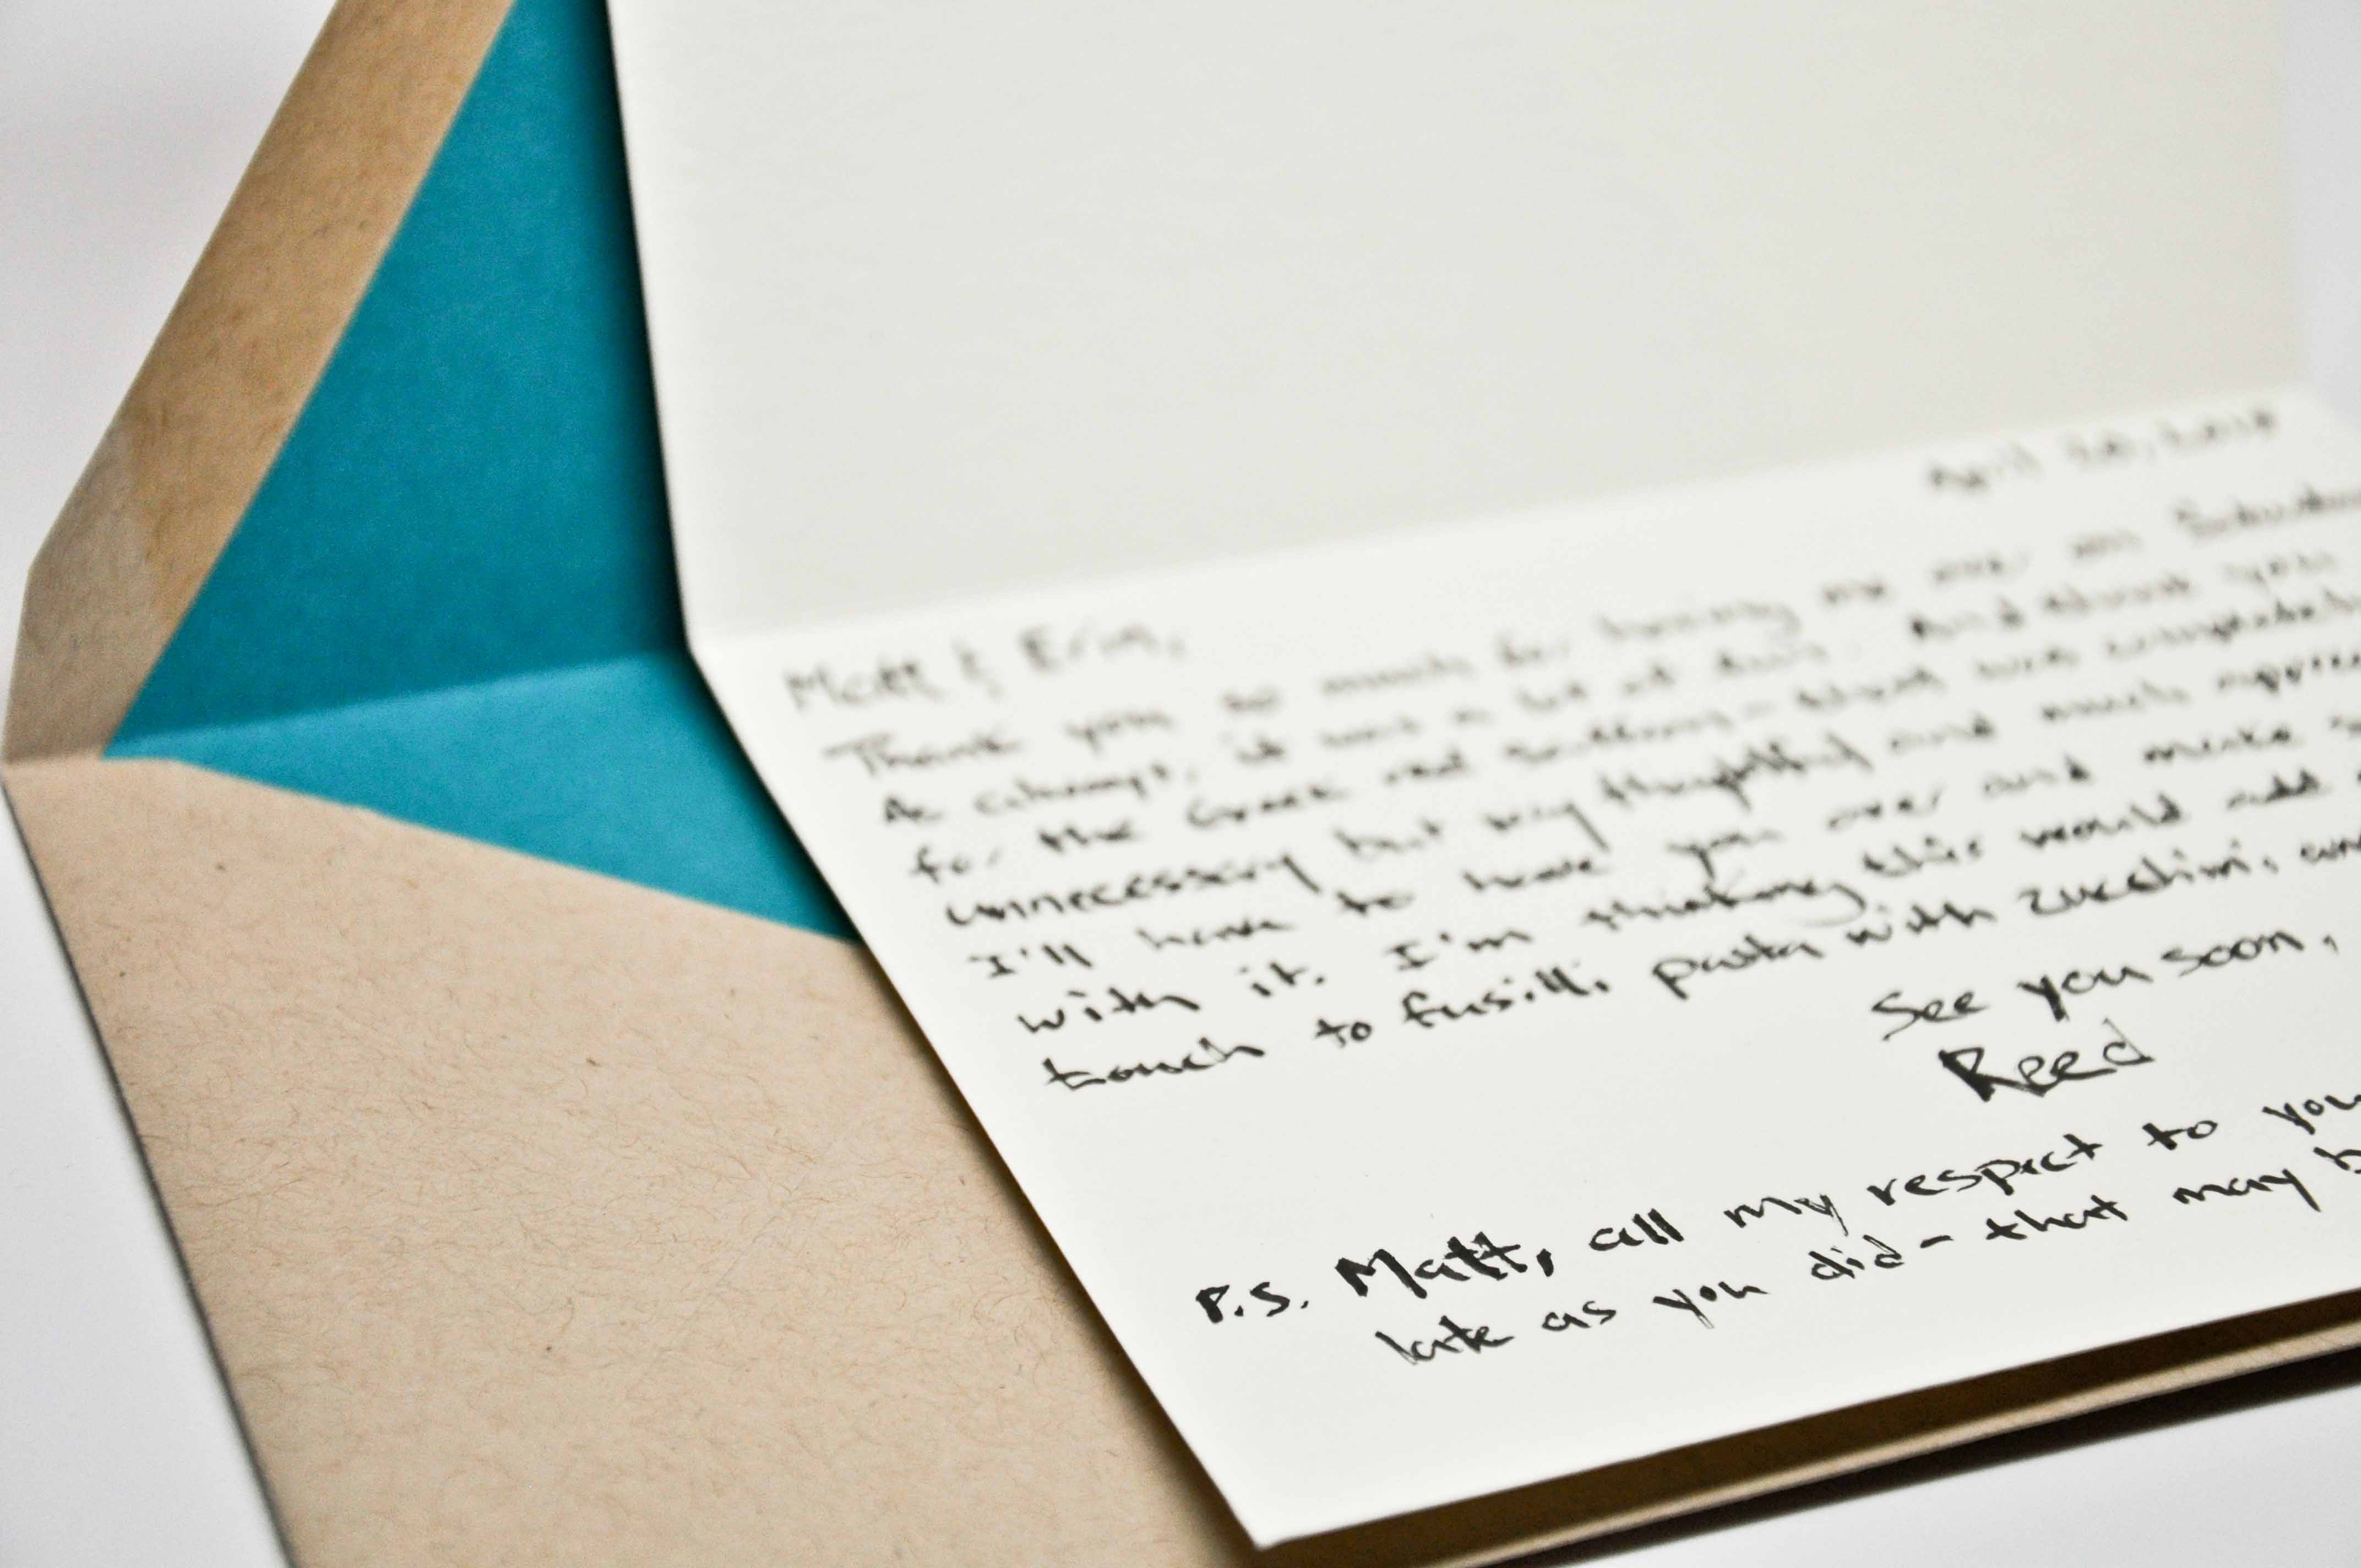 April 20, 2010
Matt & Erin,
Thank you so much for having me over on
As always, it was a lot of fun. And thank you
for the Greek red – that was completely
unnecessary but very thoughtful and much
I'll have to have you over and make
with it. I'm thinking this would add
touch to fusilli pasta with zucchini,
See you soon,
Reed
P.S. Matt, all my respect to
late as you did – that may